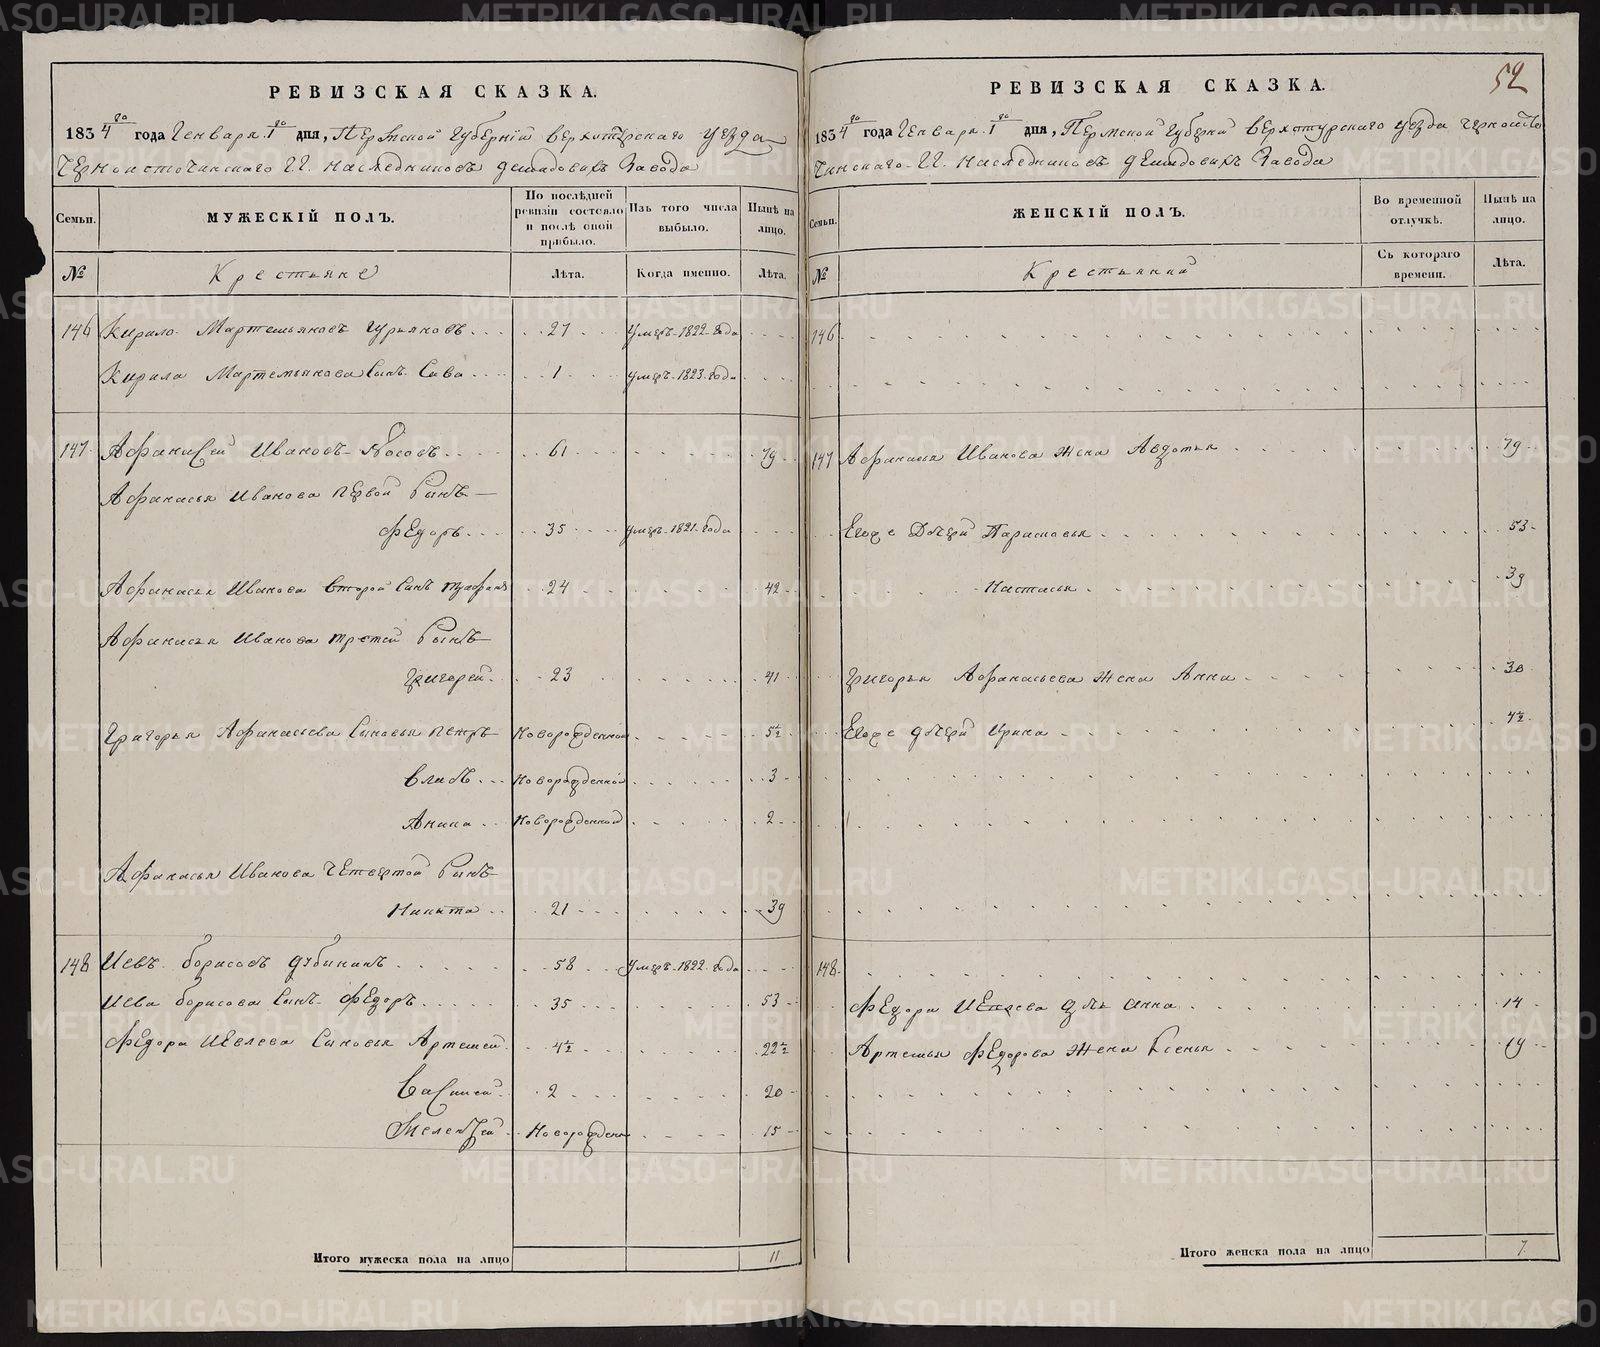 РЕВИЗСКАЯ СКАЗКА.
1834го года Генваря 1го дня, Пермской Губернии Верхотурского уезда
Черноисточинского ГГ. Наследниковъ Демидовыхъ Завода
Семьи.
МУЖЕСКІЙ ПОЛЪ.
По послѣдней ревизіи состояло и послѣ оной прибыло.
Изъ того числа выбыло.
Нынѣ на лицо.
№
Крестьяне
Лѣта.
Когда именно.
Лѣта.
146 Кирило Мартемьяновъ Гурьяновъ 27 умеръ 1822 года
Кирила Мартемьянова Сынъ Сава 1 умеръ 1823 года
147 Афанасей Ивановъ Носовъ 61 79
Афанасья Иванова первой Сынъ
Федоръ 35 умеръ 1821 года
Афанасья Иванова второй Сынъ 24 42
Афанасья Иванова третей Сынъ
Григорей 23 41
Григорья Афанасьева Сыновья Петръ Новорожденной 5½
Новорожденной 3
Аника Новорожденной 2
Афанасья Иванова четвертой Сынъ
Никита 21 39
148 Иевъ Борисовъ Дубининъ 58 умеръ 1822 года
Иева Борисова Сынъ Федоръ 35 53
Федора Иевлева Сыновья Артемей 4½ 22½
Василей 2 20
Мелентей Новорожден 15
Итого мужеска пола на лицо 11
52
РЕВИЗСКАЯ СКАЗКА.
1834го года Генваря 1го дня, Пермской Губернии Верхотурского уезда Черноисто
чинского ГГ. Наследниковъ Демидовыхъ Завода
Семьи.
ЖЕНСКІЙ ПОЛЪ.
Во временной отлучкѣ.
Нынѣ на лицо.
№
Крестьянки
Съ котораго времени.
Лѣта.
146
147 Афанасья Иванова жена Авдотья 79
Егоже Дочери Парасковья 53
Настасья 39
Григорья Афанасьева жена Анна 30
Егоже дочери Ирина 4½
148
Федора Иевлева дочь Анна 14
Артемья Федорова жена Ксенья 19
Итого женска пола на лицо 7
METRIKI.GASO-URAL.RU